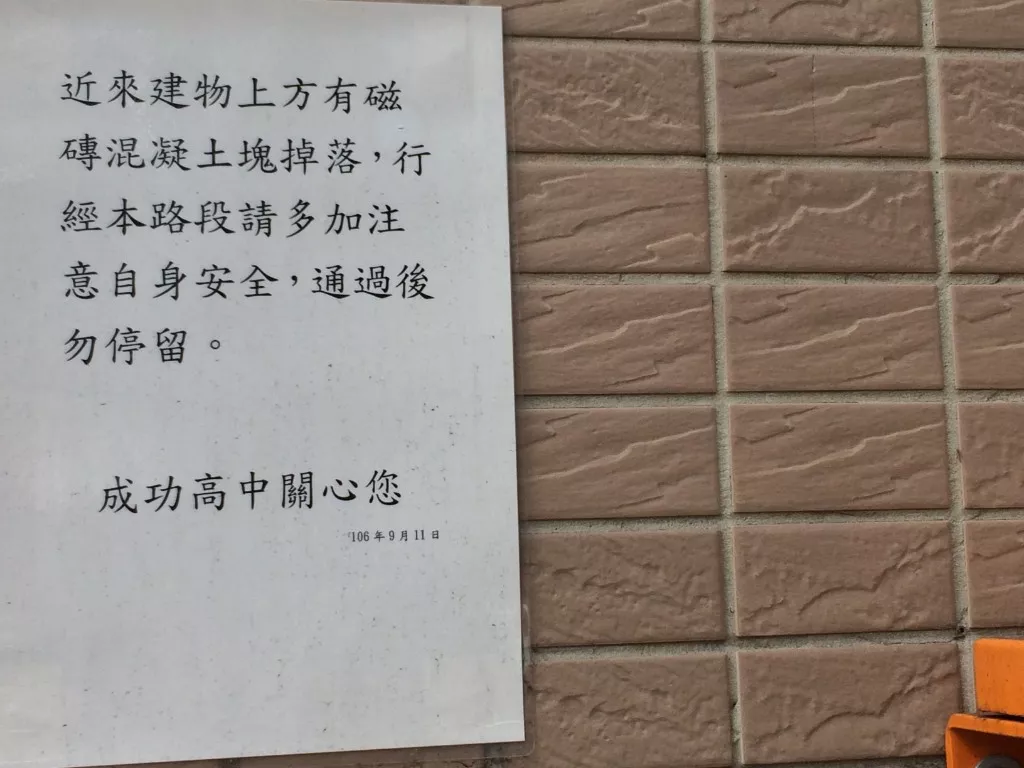 近來建物上方有磁
磚混凝土塊掉落，行
經本路段請多加注
意自身安全，通過後
勿停留。
成功高中關心您
106年9月11日